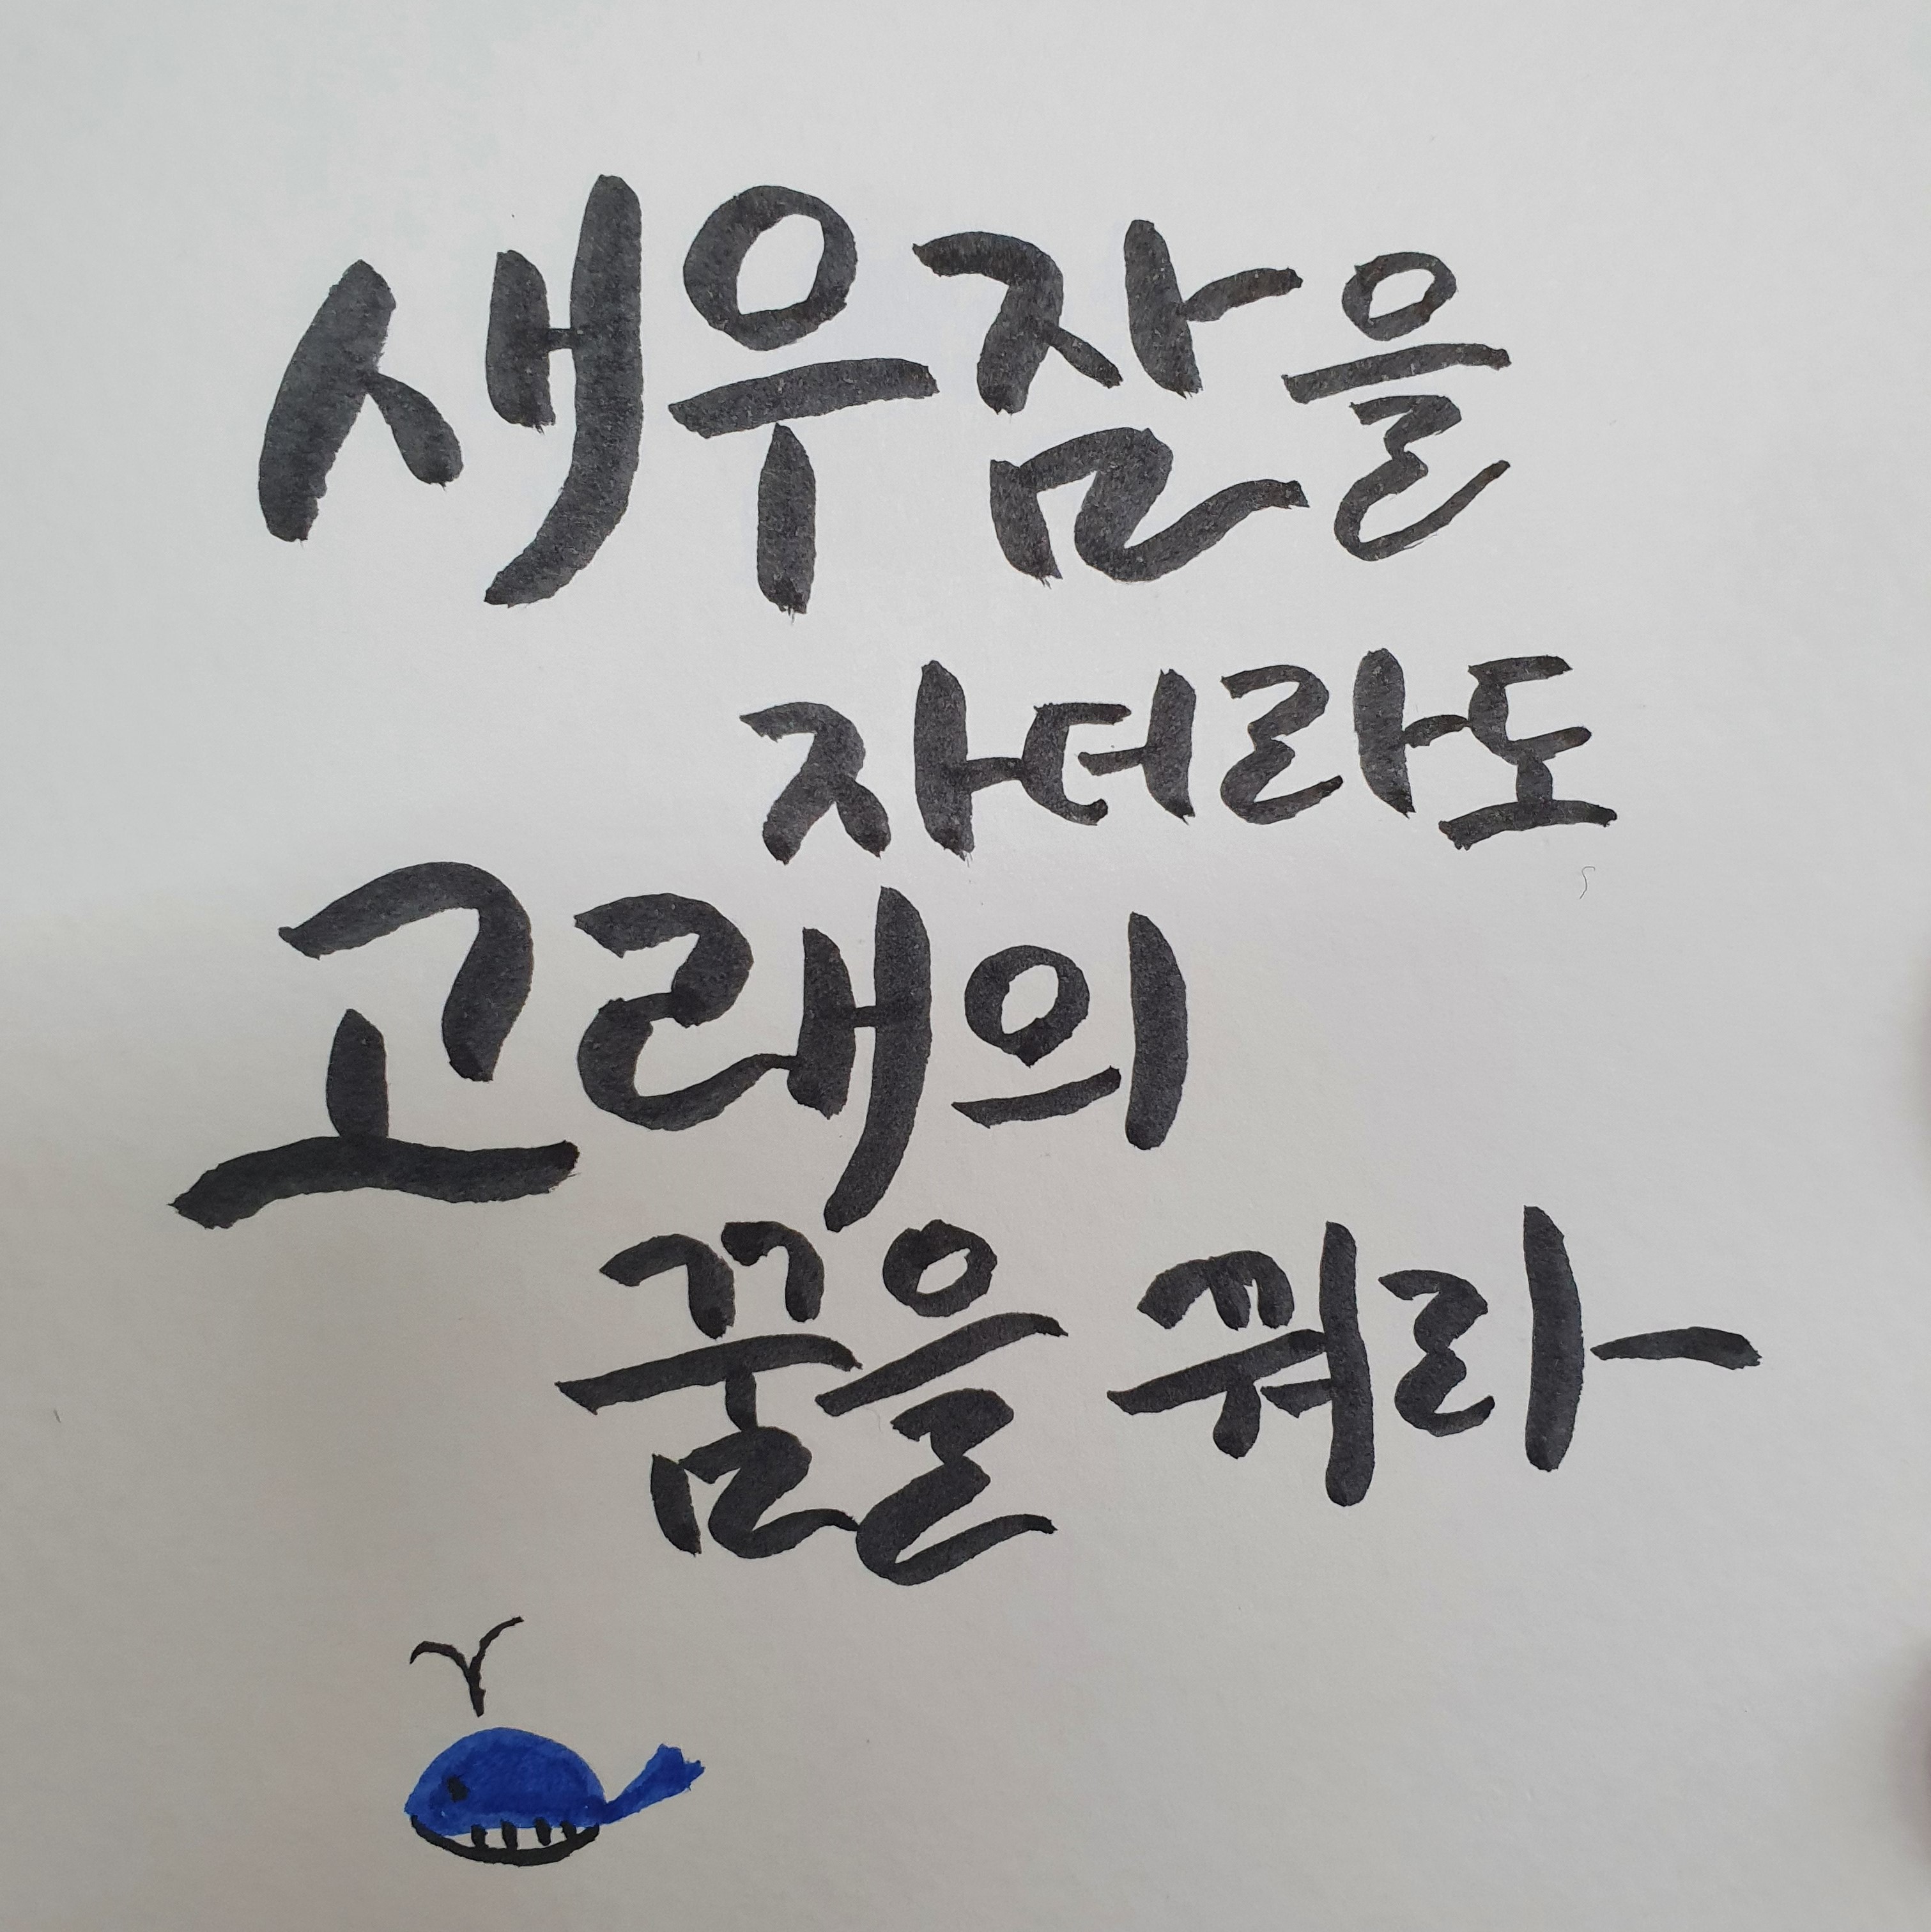 새우잠을
자더라도
고래의
꿈을 꿔라